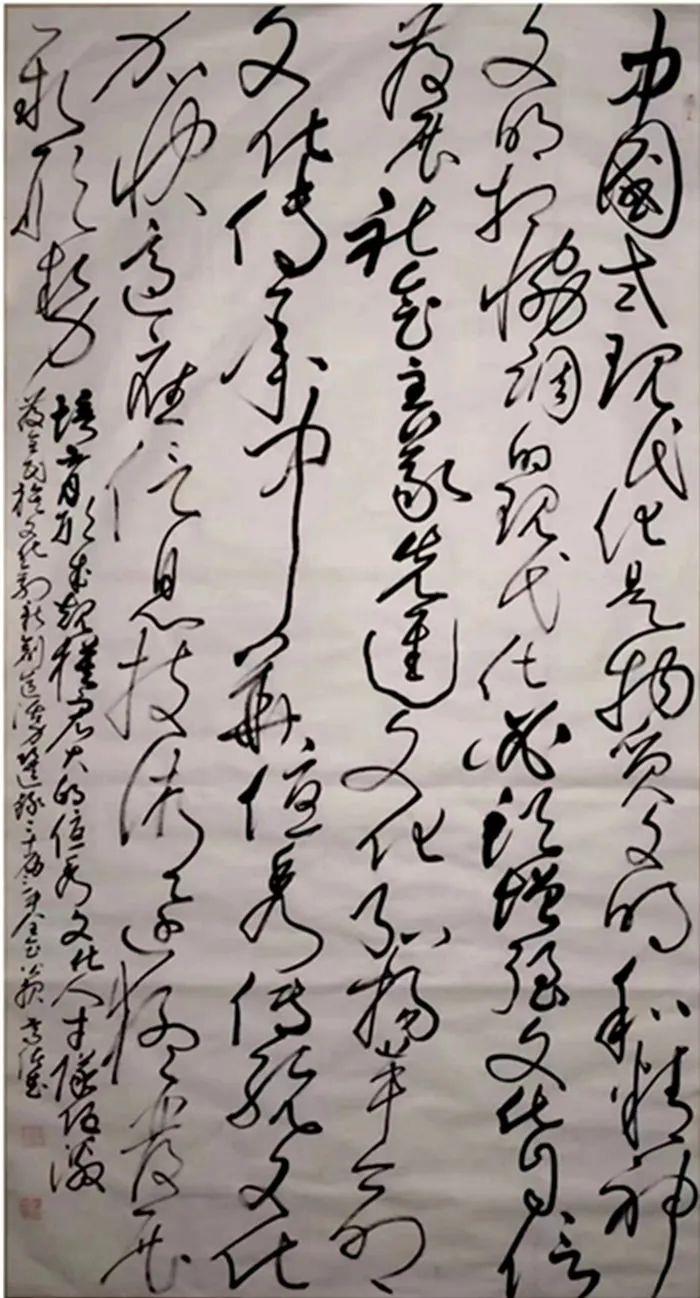 中国式现代化是物质文明和精神
文明相协调的现代化必须增强文化自信
发展社会主义先进文化弘扬革命
文化传承中华优秀传统文化
加快适应信息技术迅猛发展
新形势
培育形成规模宏大的优秀文化人才队伍激
发全民族文化创新创造活力 录二十届三中全会公报